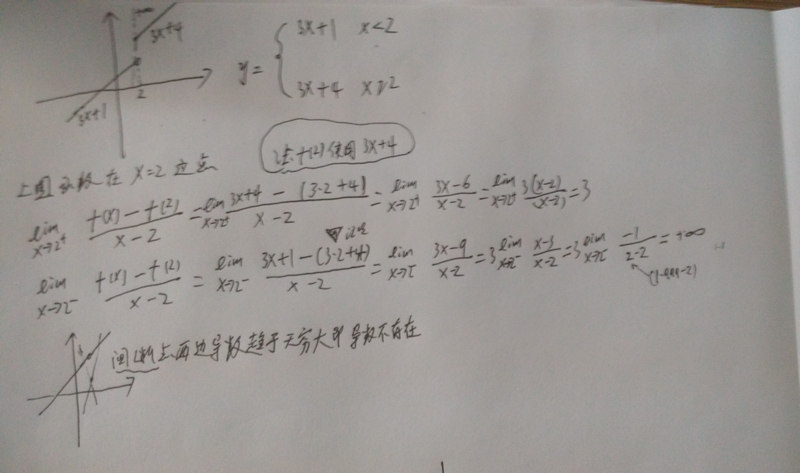 3x+4
3x+1
2
y= { 3x+1 x<2
3x+4 x≥2
注f(2)使用3x+4
上图函数在 x=2 这点
lim x→2⁺ (f(x)-f(2))/(x-2) = lim x→2⁺ (3x+4-(3·2+4))/(x-2) = lim x→2⁺ (3x-6)/(x-2) = lim x→2⁺ 3(x-2)/(x-2) = 3
lim x→2⁻ (f(x)-f(2))/(x-2) = lim x→2⁻ (3x+1-(3·2+4))/(x-2) = lim x→2⁻ (3x-9)/(x-2) = 3 lim x→2⁻ (x-3)/(x-2) = 3 lim x→2⁻ (-1)/(2-2) = +∞
间断点两边导数趋于无穷大即导数不存在